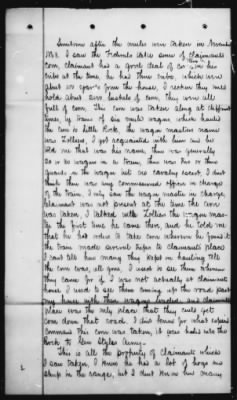 Sometime after the mules were taken in November
1863 I saw the Federals take some of claimants
corn, claimant had a good deal of corn in his
cribs at the time, he had three cribs, which were
about 200 yards from the house, I reckon they would
hold about 200 bushels of corn, they were all
full of corn. This corn was taken along at different
times, by trains of six mule wagons which hauled
the corn to Little Rock, the wagon masters name
was Zollies, I got acquainted with him and he
told me that was his name, there was generally
20 or 30 wagons in a train, there was two or three
guards in the wagon but no cavalry escort I dont
think there was any Commissioned officer in charge
of the train. I only saw the wagon master in charge
Claimant was not present at the time the corn
was taken, I talked with Zollies the wagon mas-
ter the first time he came there, and he told me
that he had orders to take corn wherever he found it
the train made several trips to claimants place
I cant tell how many they kept on hauling till
the corn was all gone, I used to see them whenever
they came for it I was not actually at claimants
house I used to see them coming up the road past
my house with their wagons loaded, and claimants
place was the only place that they could get
corn down that road. I dont know for what especial
command this corn was taken, it was hauled into Little
Rock to Gen Steeles Army.
This is all the property of claimants which
I saw taken, I know he had a lot of hogs and
sheep in the range, but I dont know how many